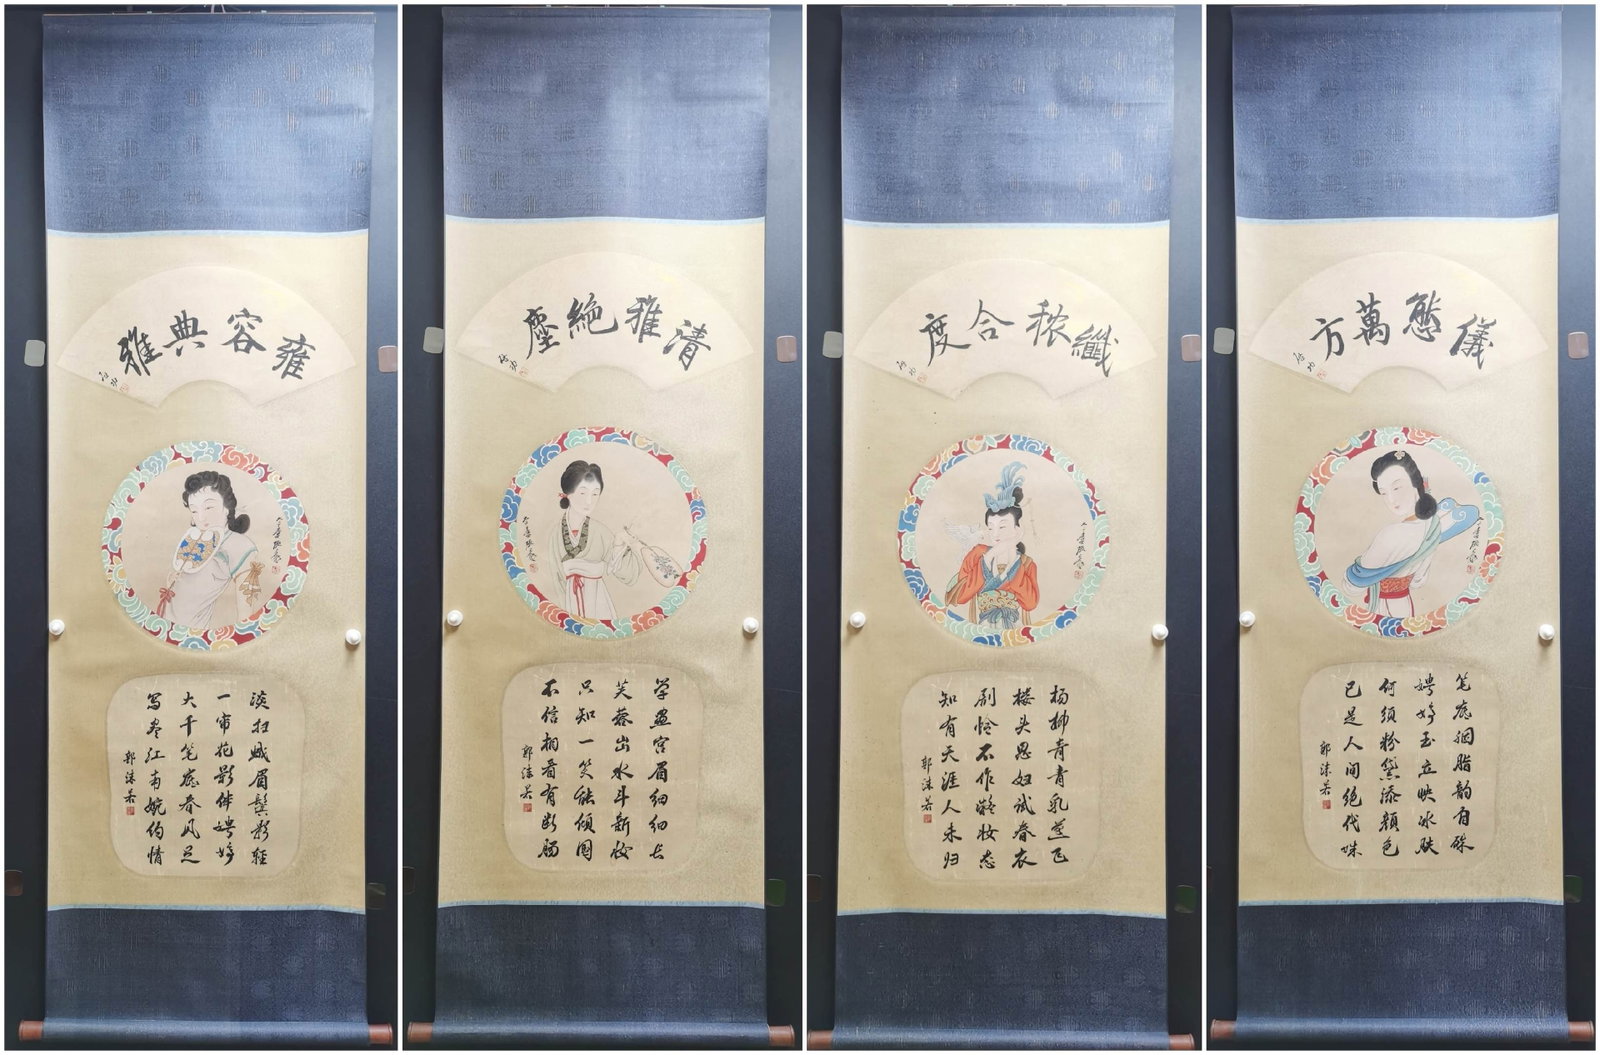 雍容典雅
启功
淡扫蛾眉鬓影轻
一帘花影伴娉婷
大千笔底春风足
写尽江南婉约情
郭沫若
清雅絶塵
启功
学画宫眉细细长
芙蓉出水斗新妆
只知一笑能倾国
不信相看有断肠
郭沫若
纖秾合度
启功
杨柳青青乳燕飞
楼头思妇试春衣
剧怜不作凝妆态
知有天涯人未归
郭沫若
儀態萬方
启功
笔底胭脂韵自殊
娉婷玉立映冰肤
何须粉黛添颜色
已是人间绝代姝
郭沫若